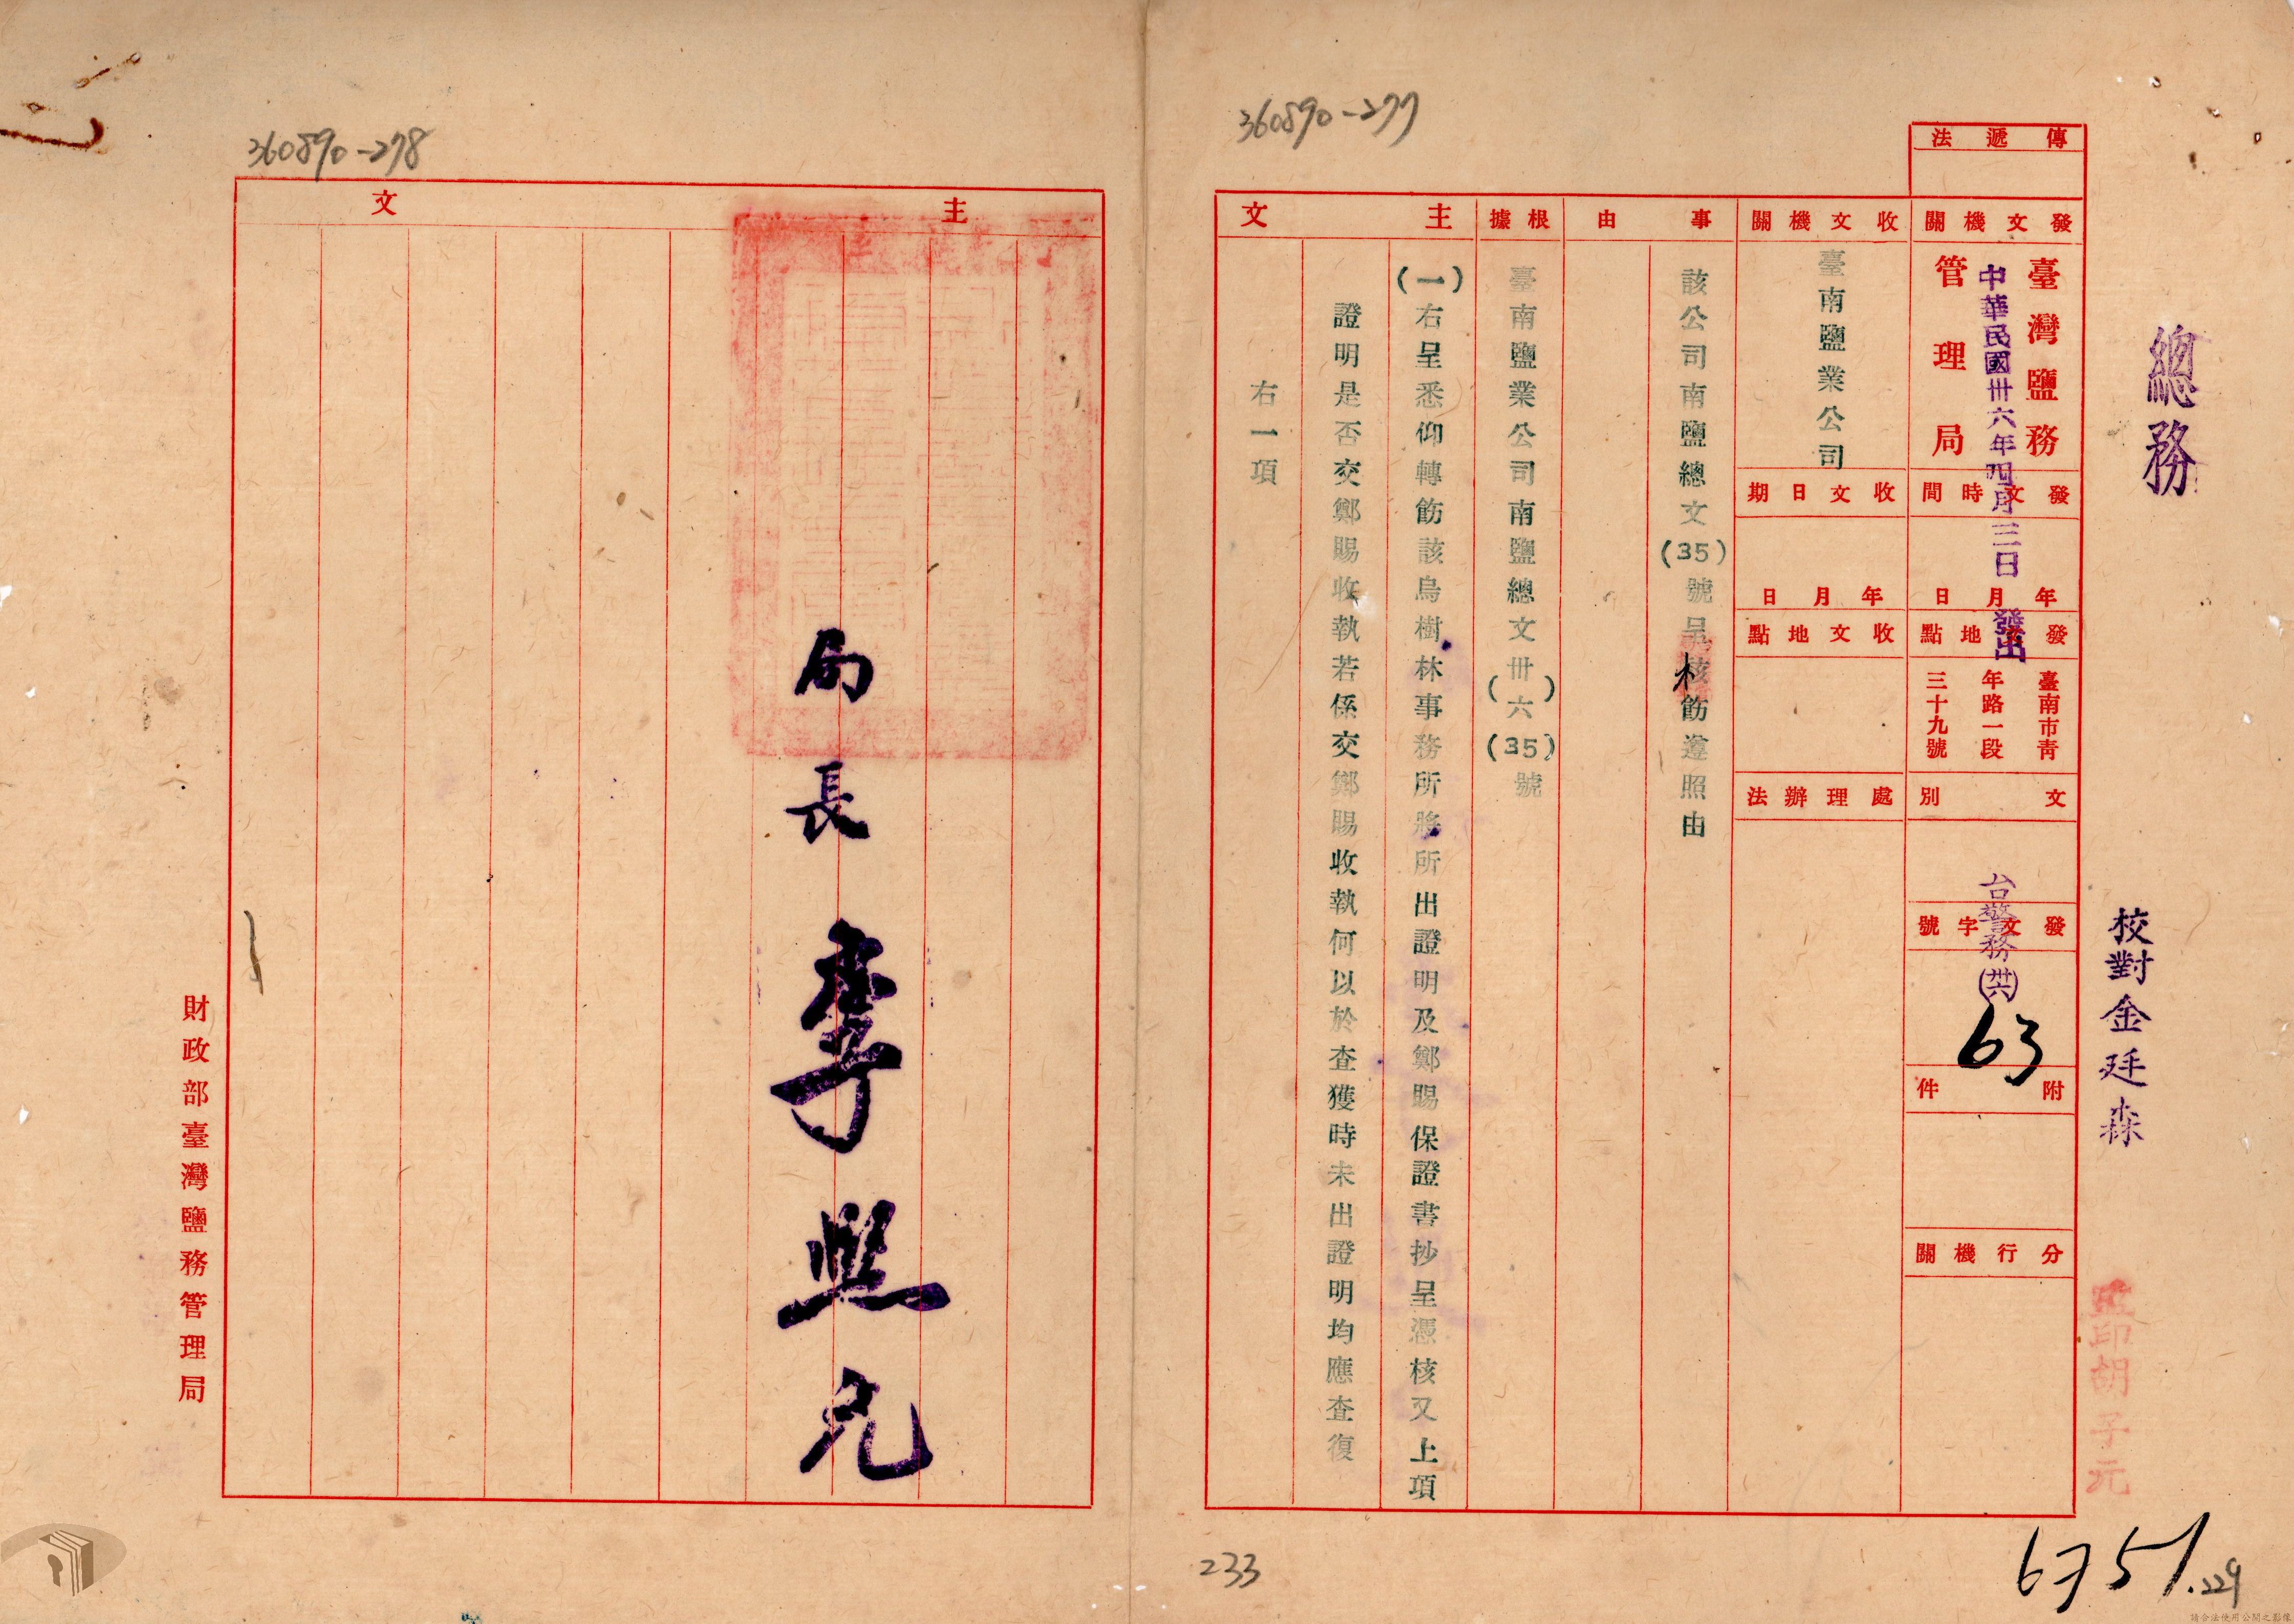 360890-277
總務
校對金廷森
監印胡子元
傳遞法
發文機關
臺灣鹽務
管理局
發文時間
年月日
中華民國卅六年四月三日發出
發文地點
臺南市青
年路一段
三十九號
文別
發文字號
台警務(卅六)
63
附件
分行機關
收文機關
臺南鹽業公司
收文日期
年月日
收文地點
處理辦法
事由
該公司南鹽總文(35)號呈核飭遵照由
根據
臺南鹽業公司南鹽總文(卅六)(35)號
主文
(一)右呈悉仰轉飭該烏樹林事務所將所出證明及鄭賜保證書抄呈憑核又上項
證明是否交鄭賜收執若係交鄭賜收執何以於查獲時未出證明均應查復
右一項
233
6751.229
360890-278
主文
局長李熙允
財政部臺灣鹽務管理局
請合法使用公開之影像